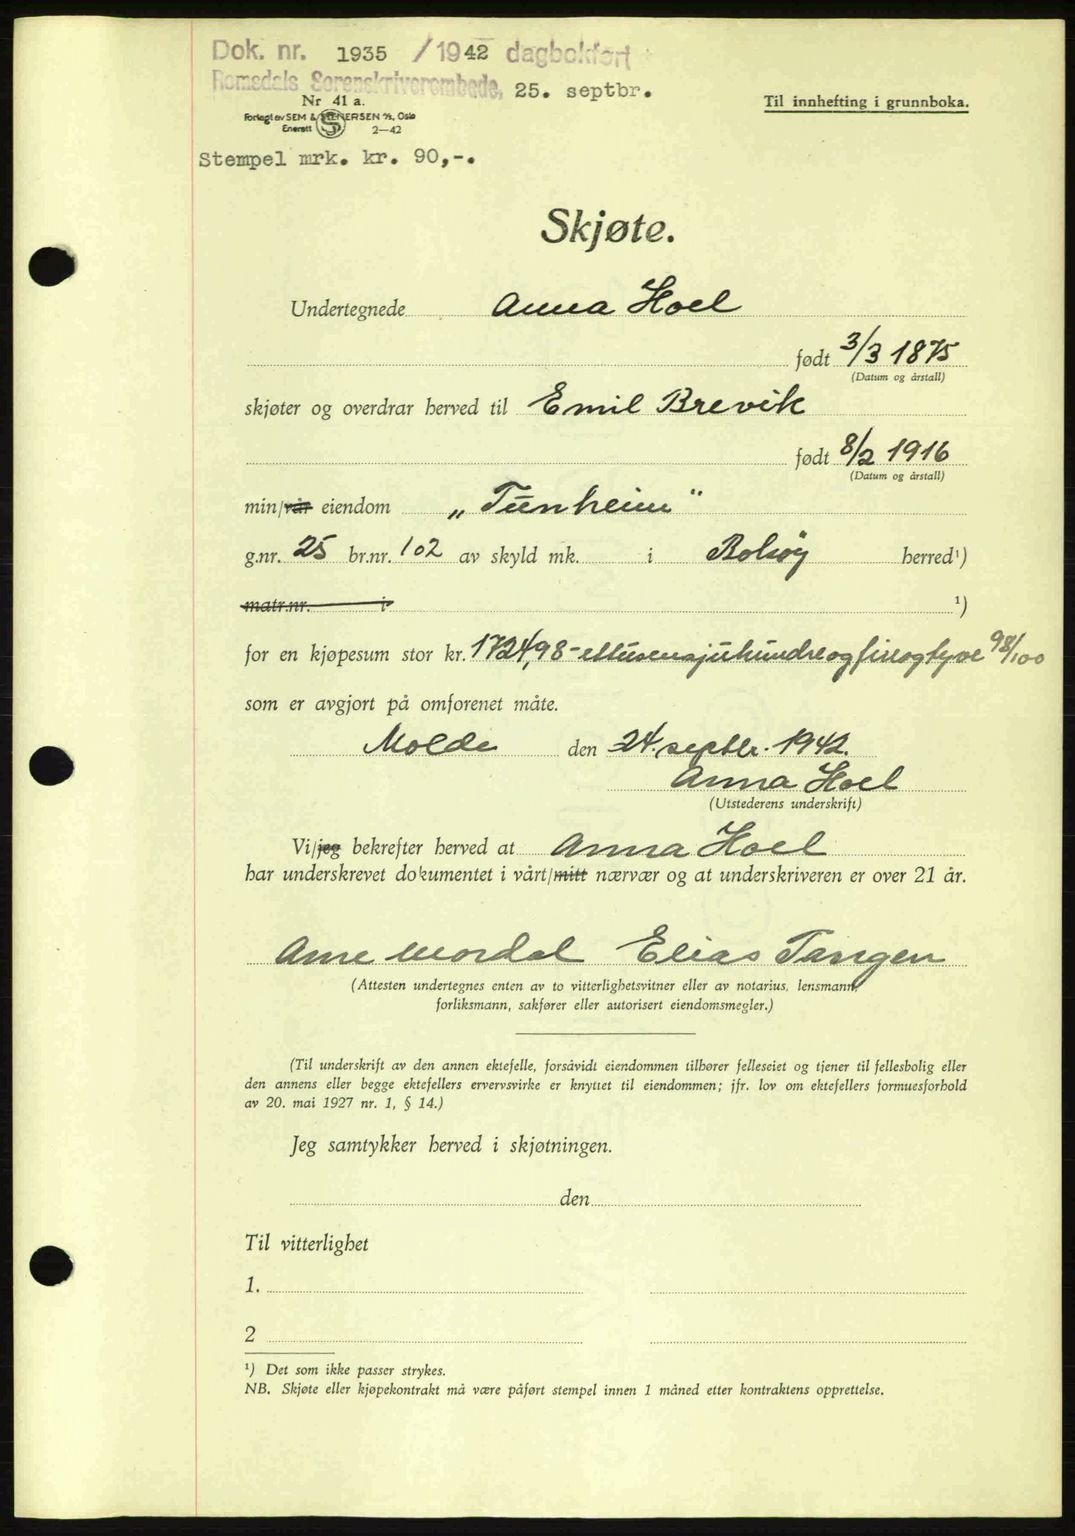 Dok. nr. 1935 / 1942 dagbokført
Romsdals Sorenskriverembede, 25. septbr.
Nr 41 a.
Forlagt av SEM & STENERSEN A/S, Oslo
Enerett 2—42
Til innhefting i grunnboka.
Stempel mrk. kr. 90,-.
Skjøte.
Undertegnede Anna Hoel
født 3/3 1875
(Datum og årstall)
skjøter og overdrar herved til Emil Brevik
født 8/2 1916
(Datum og årstall)
min/vår eiendom „Tunheim"
g.nr. 25 br.nr. 102 av skyld mk. i Bolsøy herred¹)
matr.nr. i ¹)
for en kjøpesum stor kr. 1724,98 - ettusensjuhundreogfireogtyve 98/100
som er avgjort på omforenet måte.
Molde den 24. septbr. 1942.
Anna Hoel
(Utstederens underskrift)
Vi/jeg bekrefter herved at Anna Hoel
har underskrevet dokumentet i vårt/mitt nærvær og at underskriveren er over 21 år.
Anne Mordal Elias Tangen
(Attesten undertegnes enten av to vitterlighetsvitner eller av notarius, lensmann,
forliksmann, sakfører eller autorisert eiendomsmegler.)
(Til underskrift av den annen ektefelle, forsåvidt eiendommen tilhører felleseiet og tjener til fellesbolig eller
den annens eller begge ektefellers ervervsvirke er knyttet til eiendommen; jfr. lov om ektefellers formuesforhold
av 20. mai 1927 nr. 1, § 14.)
Jeg samtykker herved i skjøtningen.
den
Til vitterlighet
1.
2
¹) Det som ikke passer strykes.
NB. Skjøte eller kjøpekontrakt må være påført stempel innen 1 måned etter kontraktens opprettelse.